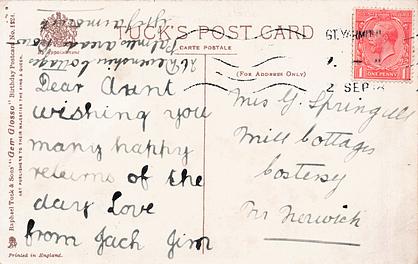 TUCK'S POST CARD
CARTE POSTALE
(FOR ADDRESS ONLY)
Devonshire Cottage
Palmer
Gt Yarmouth
Dear Aunt
wishing you
many happy
returns of the
day Love
from Jack Jim
Mrs G. Springell
Mill Cottages
Costessy
Nr Norwich
GT. YARMOUTH
2 SEP
ONE PENNY
Raphael Tuck & Sons' "Gem Glosso" Birthday Postcard No.
ART PUBLISHERS TO THEIR MAJESTIES THE KING & QUEEN.
Printed in England.